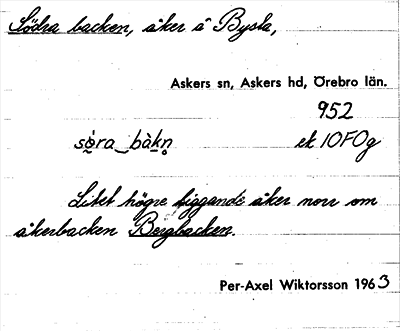 Södra backen, åker å Bysta,
Askers sn, Askers hd, Örebro län.
952
sö̀ra_bàkn̥ ek 10F0g
Litet högre liggande åker norr om
åkerbacken Bergbacken.
Per-Axel Wiktorsson 1963